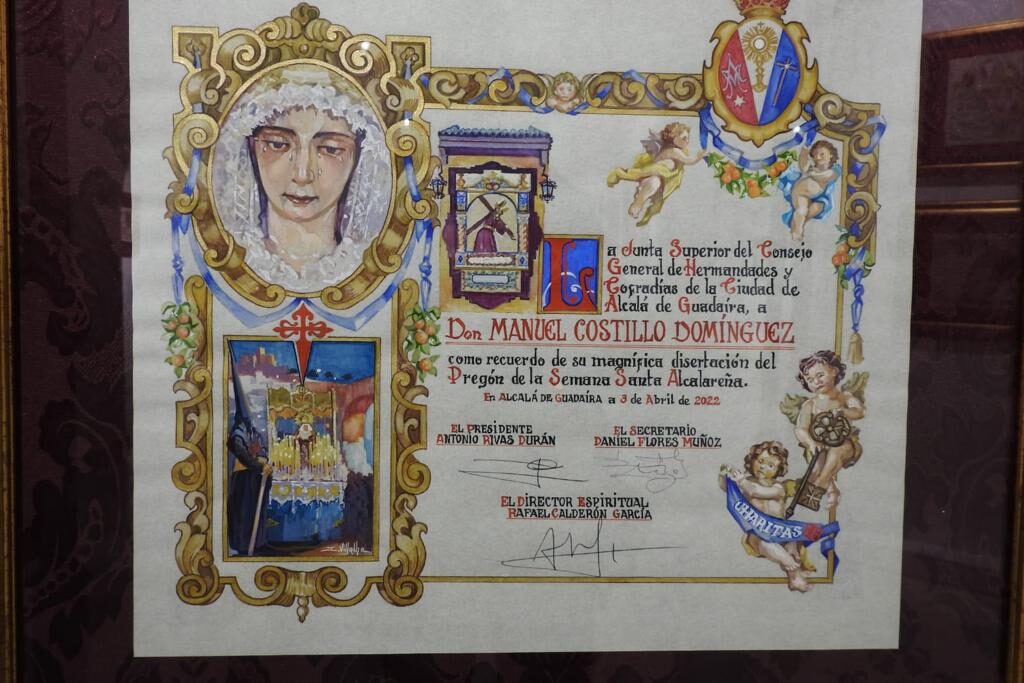 La Junta Superior del Consejo
General de Hermandades y
Cofradías de la Ciudad de
Alcalá de Guadaíra, a
Don MANUEL COSTILLO DOMÍNGUEZ
como recuerdo de su magnífica disertación del
Pregón de la Semana Santa Alcalareña.
En ALCALÁ DE GUADAÍRA a 3 de Abril de 2022
EL PRESIDENTE
ANTONIO RIVAS DURÁN
EL SECRETARIO
DANIEL FLORES MUÑOZ
EL DIRECTOR ESPIRITUAL
RAFAEL CALDERÓN GARCÍA
CHARITAS